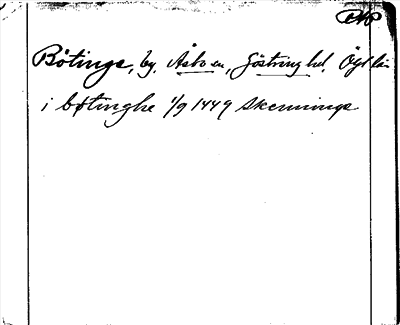 Bötinge, by, Åsbo sn, Göstring hd, Ögl län
i bøtinghe 1/9 1449 Skenninge